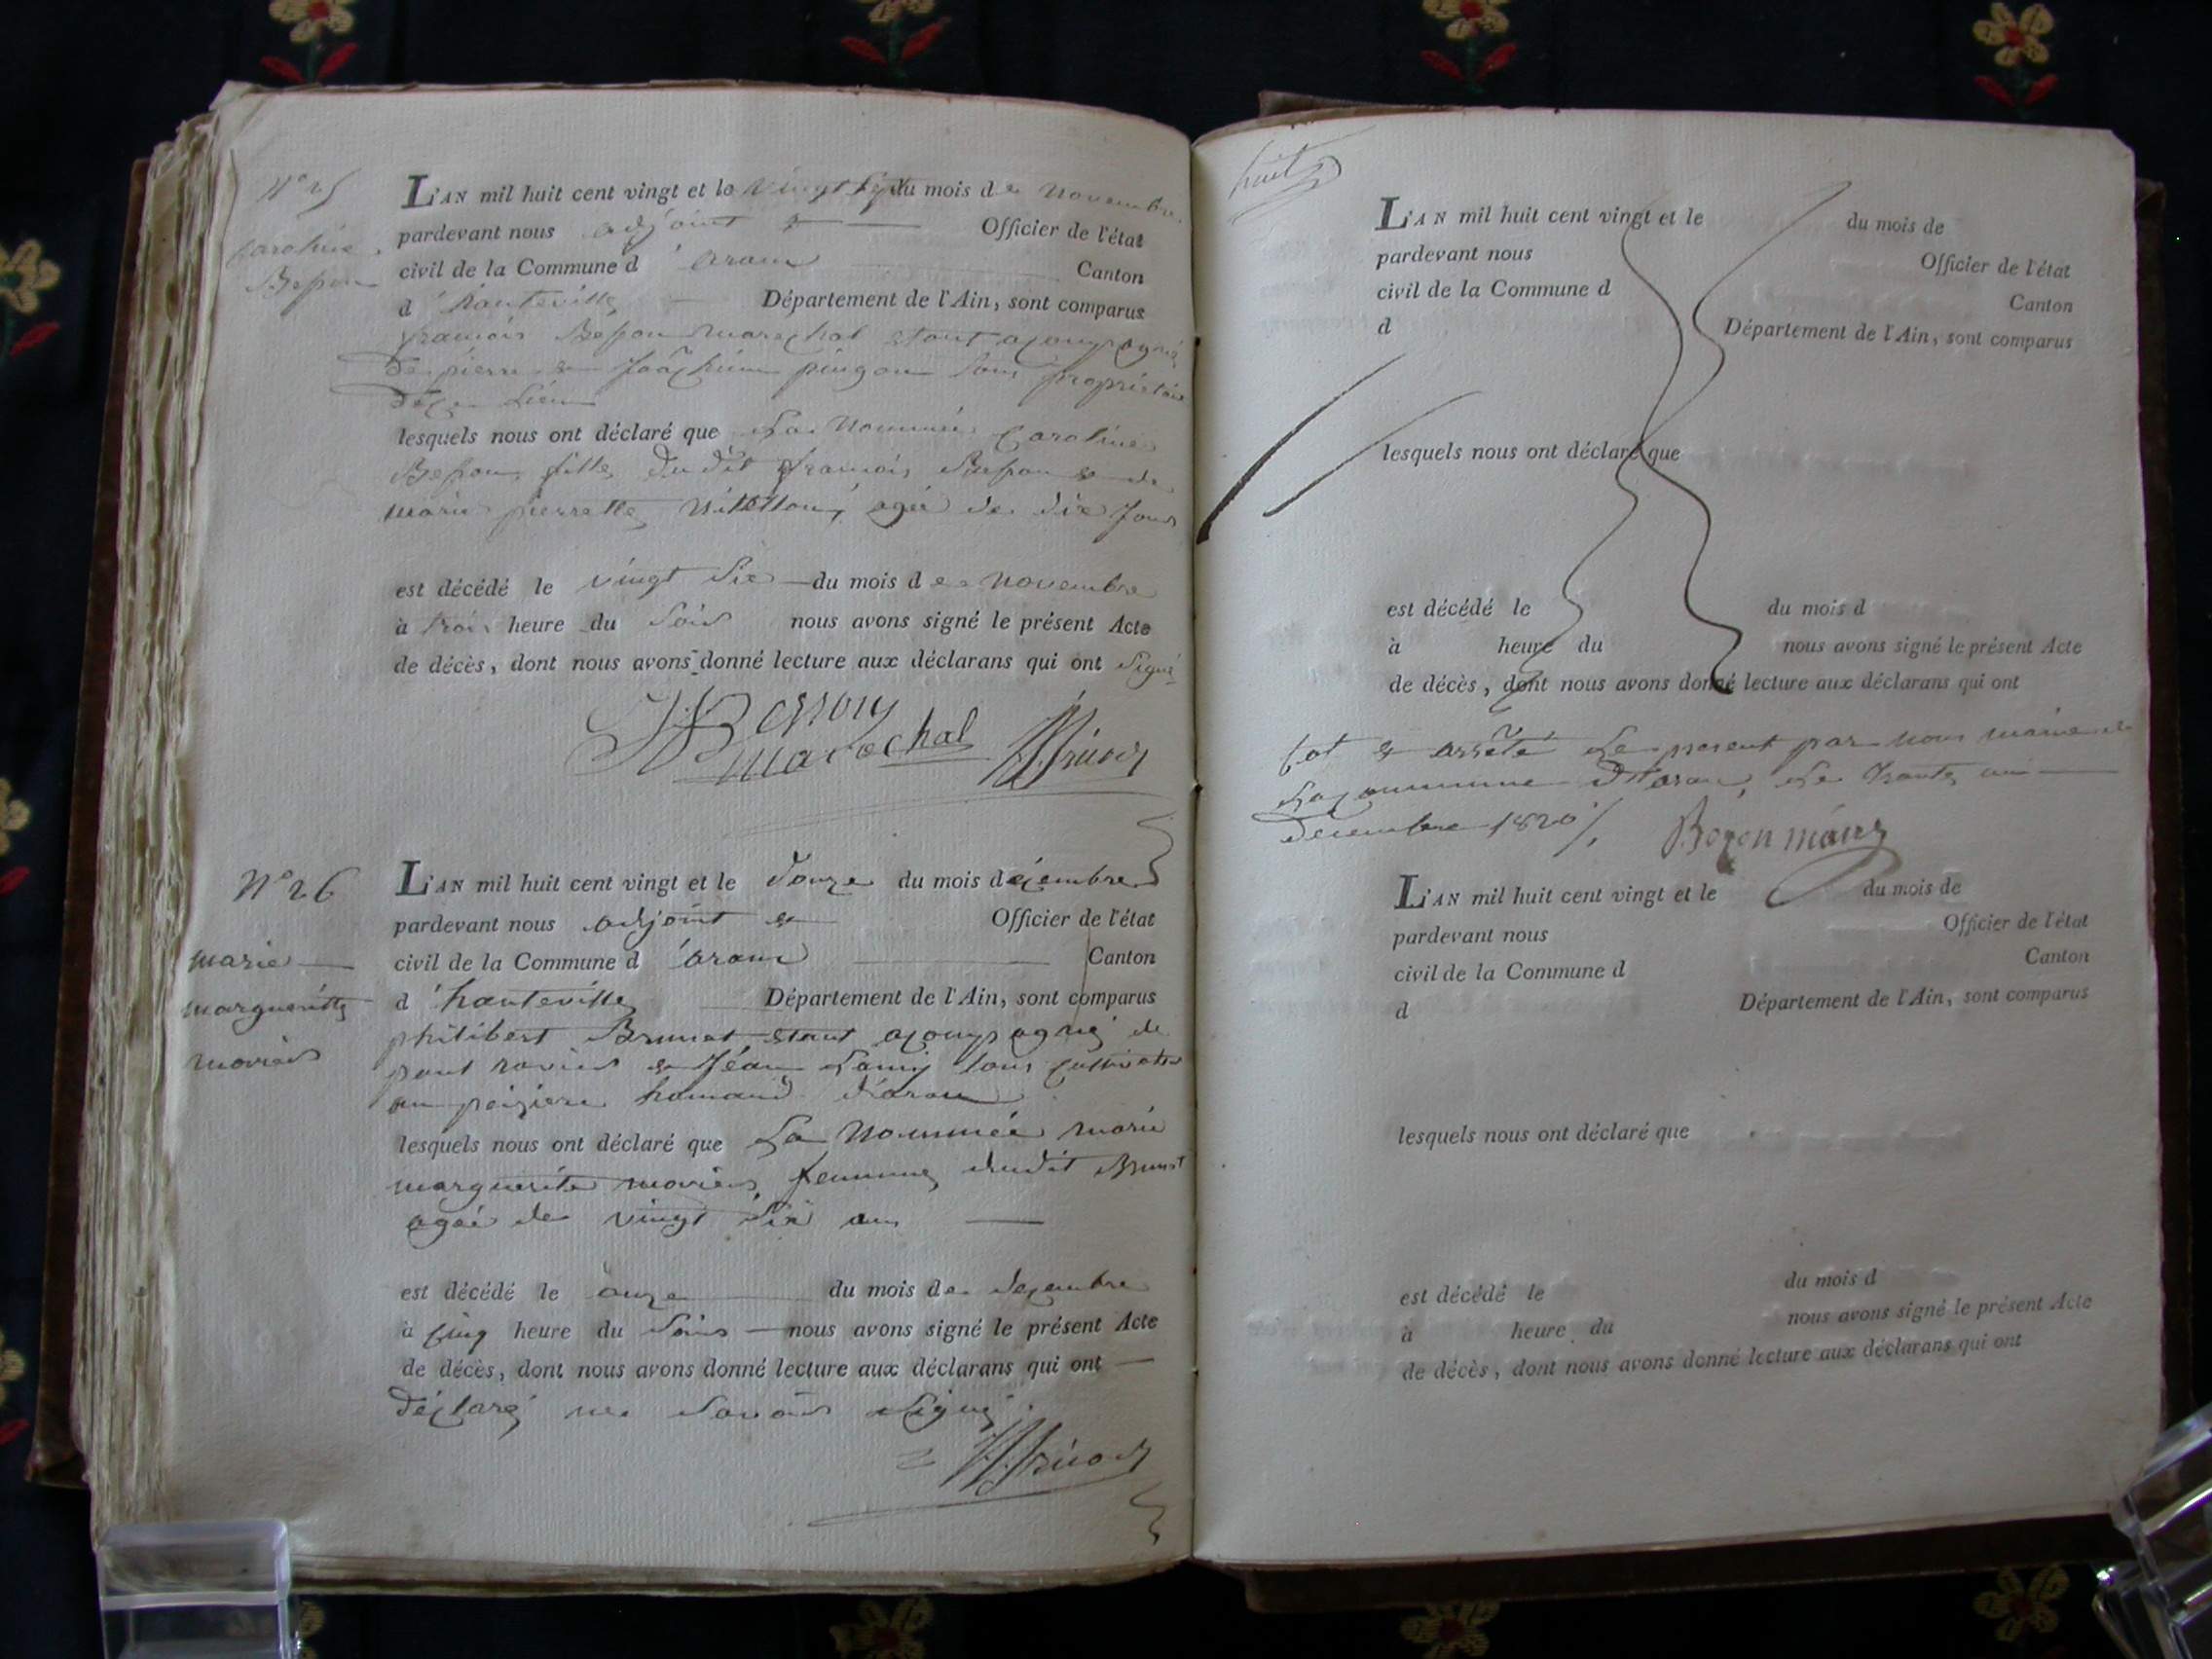 N° 25
Caroline
L'AN mil huit cent vingt et le vingt sept du mois de novembre
pardevant nous adjoint & Officier de l'état
civil de la Commune d'aranc Canton
d'hauteville Département de l'Ain, sont comparus
françois Besson marechal etant acompagné
de pierre & Joachim pingon tous propriétaire
de ce lieu
lesquels nous ont déclaré que La Nommée Caroline
Besson fille dudit françois Besson & de
marie pierrette agée de dix Jour
est décédé le vingt Six du mois de novembre
à trois heure du Soir nous avons signé le présent Acte
de décès, dont nous avons donné lecture aux déclarans qui ont Signé
Besson
marechal
N° 26
marie
margueritte
L'AN mil huit cent vingt et le douze du mois décembre
pardevant nous adjoint & Officier de l'état
civil de la Commune d'aranc Canton
d'hauteville Département de l'Ain, sont comparus
philibert Brunet etant acompagné de
& Jéan Lamy tous cultivateur
d'aranc
lesquels nous ont déclaré que La Nommée marie
marguerite femme dudit Brunet
agée de vingt Six ans
est décédé le onze du mois de decembre
à cinq heure du Soir nous avons signé le présent Acte
de décès, dont nous avons donné lecture aux déclarans qui ont
déclaré ne Savoir Signé
huit
L'AN mil huit cent vingt et le du mois de
pardevant nous Officier de l'état
civil de la Commune d Canton
d Département de l'Ain, sont comparus
lesquels nous ont déclaré que
est décédé le du mois d
à heure du nous avons signé le présent Acte
de décès, dont nous avons donné lecture aux déclarans qui ont
Clot & arrêté Le present par nous maire de
La Commune d'aranc, Le trente un
decembre 1820
Bozon maire
L'AN mil huit cent vingt et le du mois de
pardevant nous Officier de l'état
civil de la Commune d Canton
d Département de l'Ain, sont comparus
lesquels nous ont déclaré que
est décédé le du mois d
à heure du nous avons signé le présent Acte
de décès, dont nous avons donné lecture aux déclarans qui ont